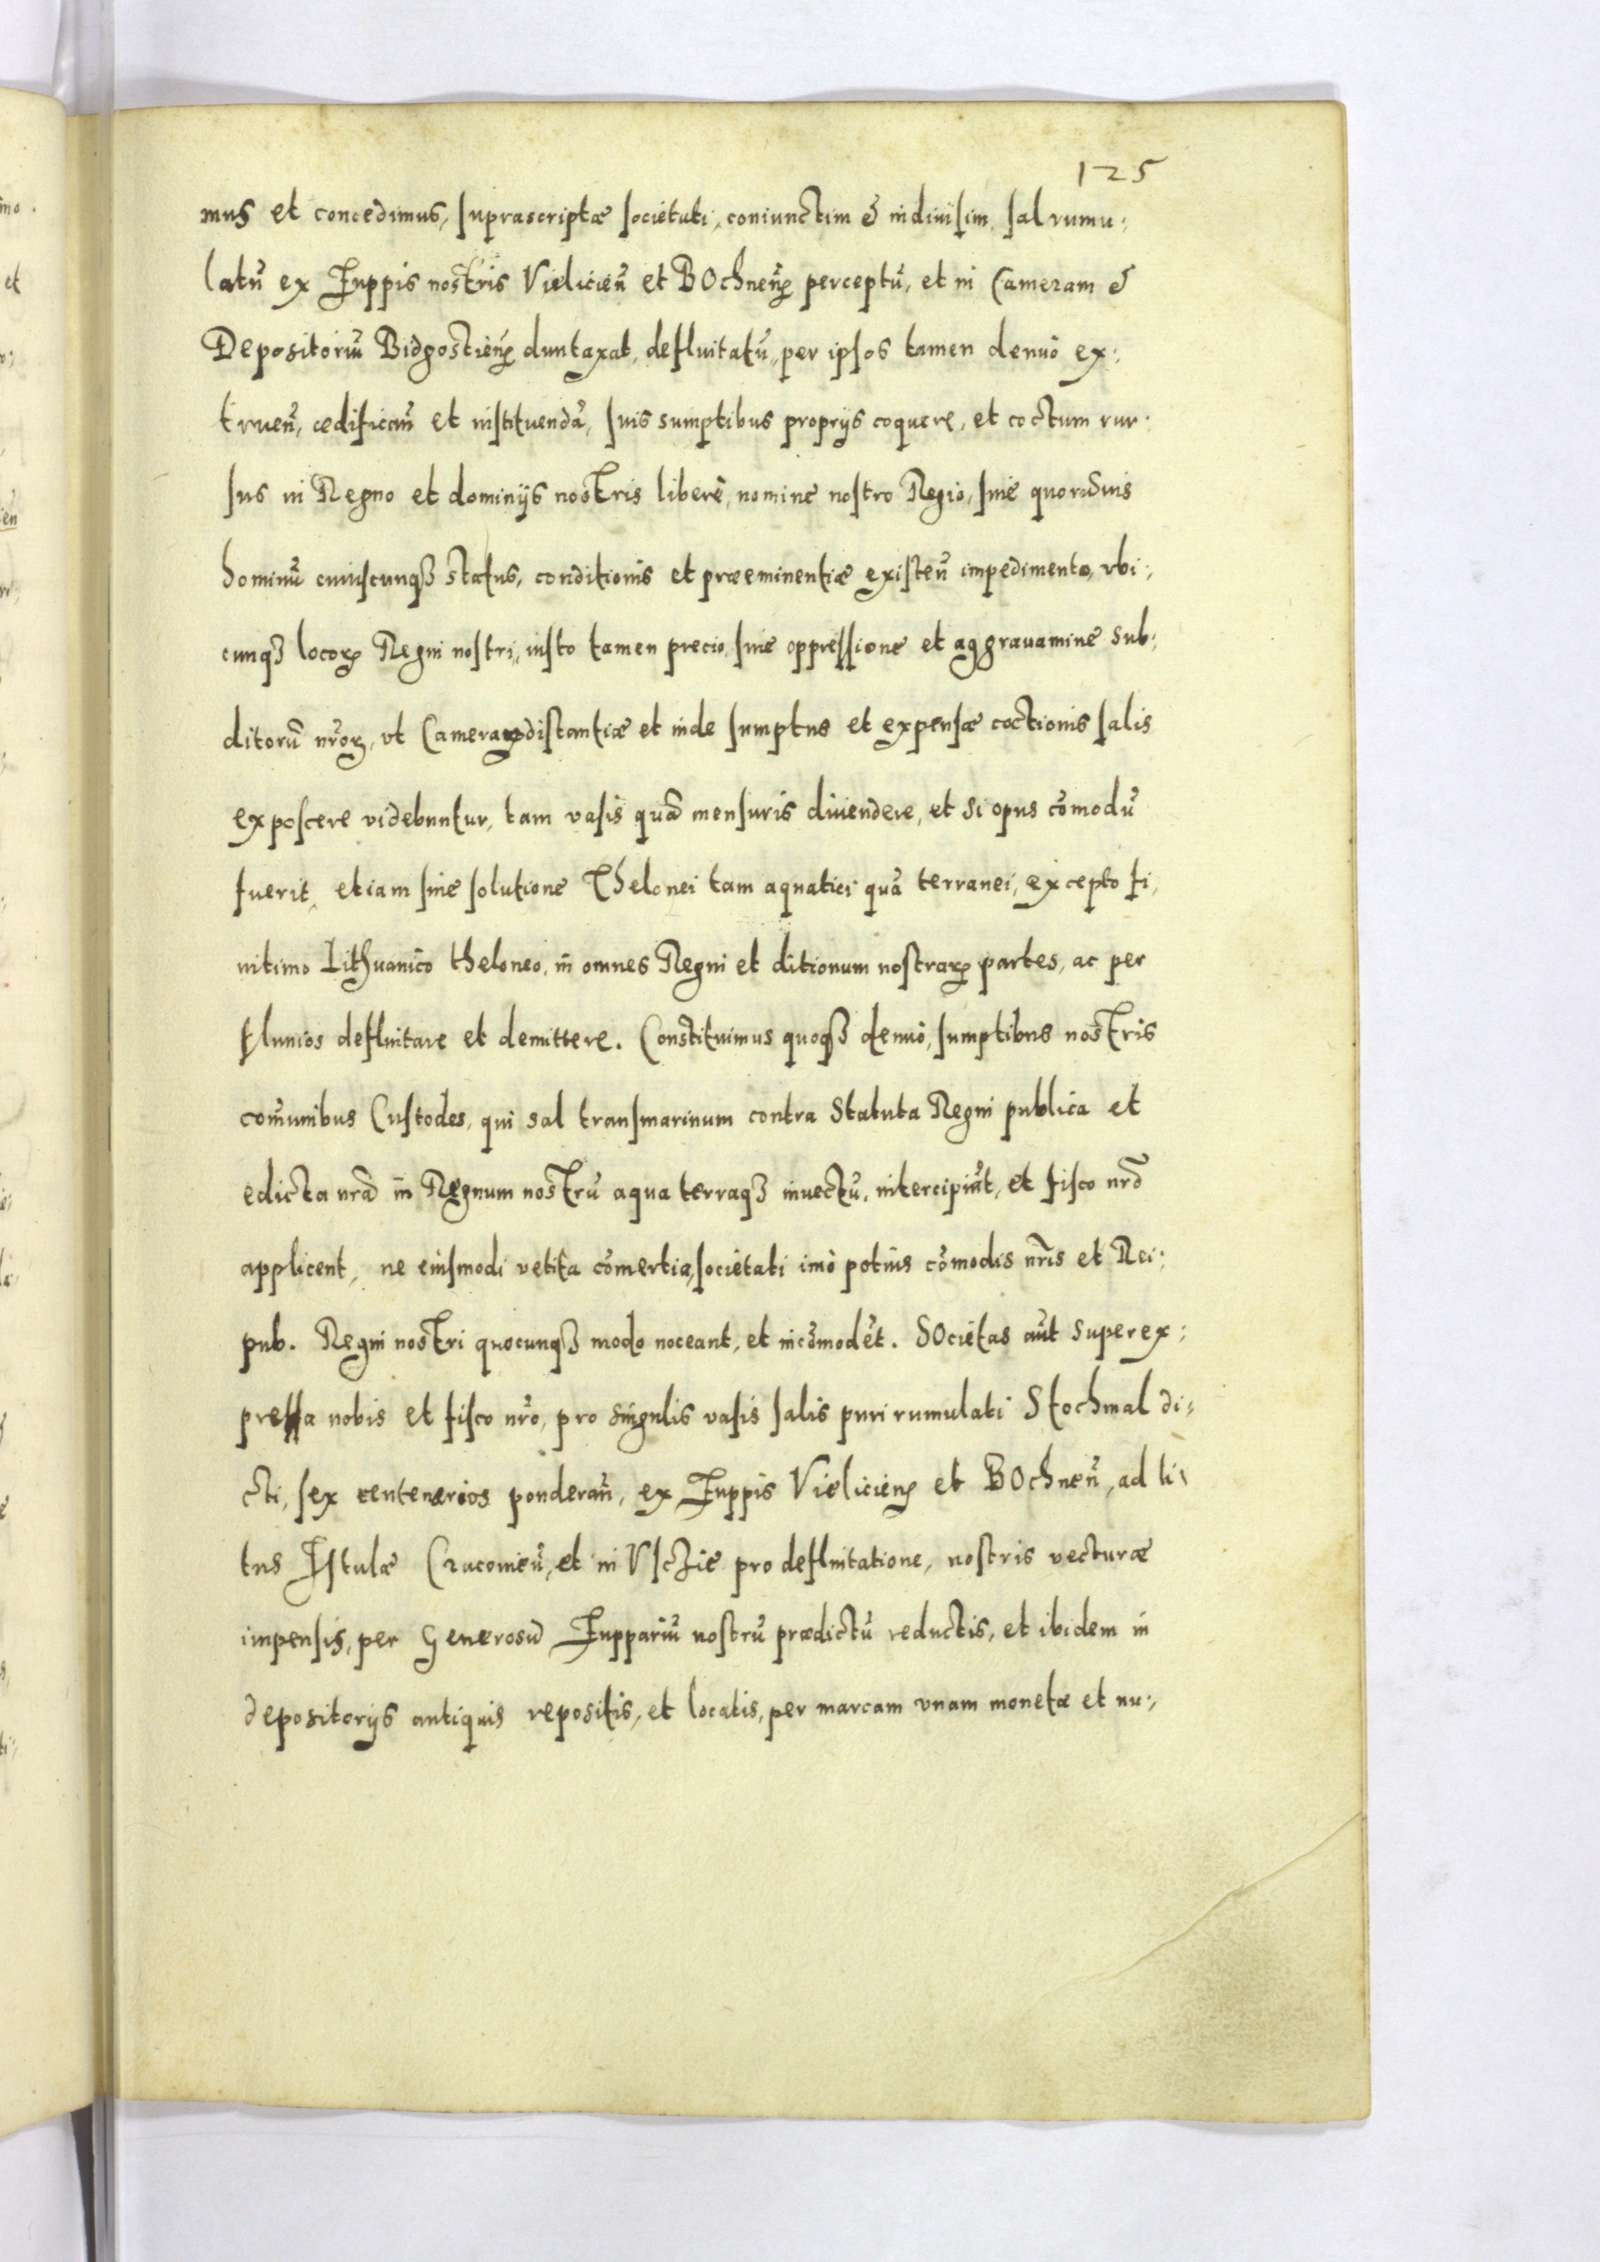 125
mus et concedimus, suprascriptæ societati, coniunctim & indiuisim, sal rumu:
latũ ex Zuppis nostris Vielicieñ et BOchneñ perceptũ, et in Cameram &
Depositoriũ Bidgostieñ duntaxat, defluitatũ, per ipsos tamen denuò ex:
trueñ, ædificañ et instituendã, suis sumptibus proprijs coquere, et coctum rur:
sus in Regno et dominijs nostris liberè, nomine nostro Regio, sine quorũuis
hominũ cuiuscunqȝ status, conditionis et præeminentiæ existeñ impedimento, vbi:
cunqȝ locoꝝ Regni nostri, iusto tamen precio, sine oppressione et aggrauamine sub:
ditorũ nr̃oꝝ, vt Cameraꝝ distantiæ et inde sumptus et expensæ coctionis salis
exposcere videbuntur, tam vasis quã mensuris diuendere, et si opus cõmodũ
fuerit, etiam sine solutione Thelonei tam aquatici quã terranei, excepto fi:
nitimo Lithuanico theloneo, in omnes Regni et ditionum nostraꝝ partes, ac per
fluuios defluitare et demittere. Constituimus quoqȝ denuò, sumptibus nostris
com̃unibus Custodes, qui sal transmarinum contra Statuta Regni publica et
edicta nrã in Regnum nostrũ aqua terraqȝ inuectũ, intercipiũt, et fisco nrõ
applicent, ne eiusmodi vetita cõmertia, societati imò potius cõmodis nrĩs et Rei:
pub. Regni nostri quocunqȝ modo noceant, et incõmodẽt. SOcietas aũt superex:
pressa nobis et fisco nrõ, pro singulis vasis salis puri rumulati Stochmal di:
cti, sex centenarios ponderañ, ex Zuppis Vielicieñ et BOchneñ, ad li
tus Istulæ Cracouieñ, et in Vsczie pro defluitatione, nostris vecturæ
impensis, per Generosũ Zuppariũ nostrũ prædictũ reductis, et ibidem in
depositorijs antiquis repositis, et locatis, per marcam vnam monetæ et nu: